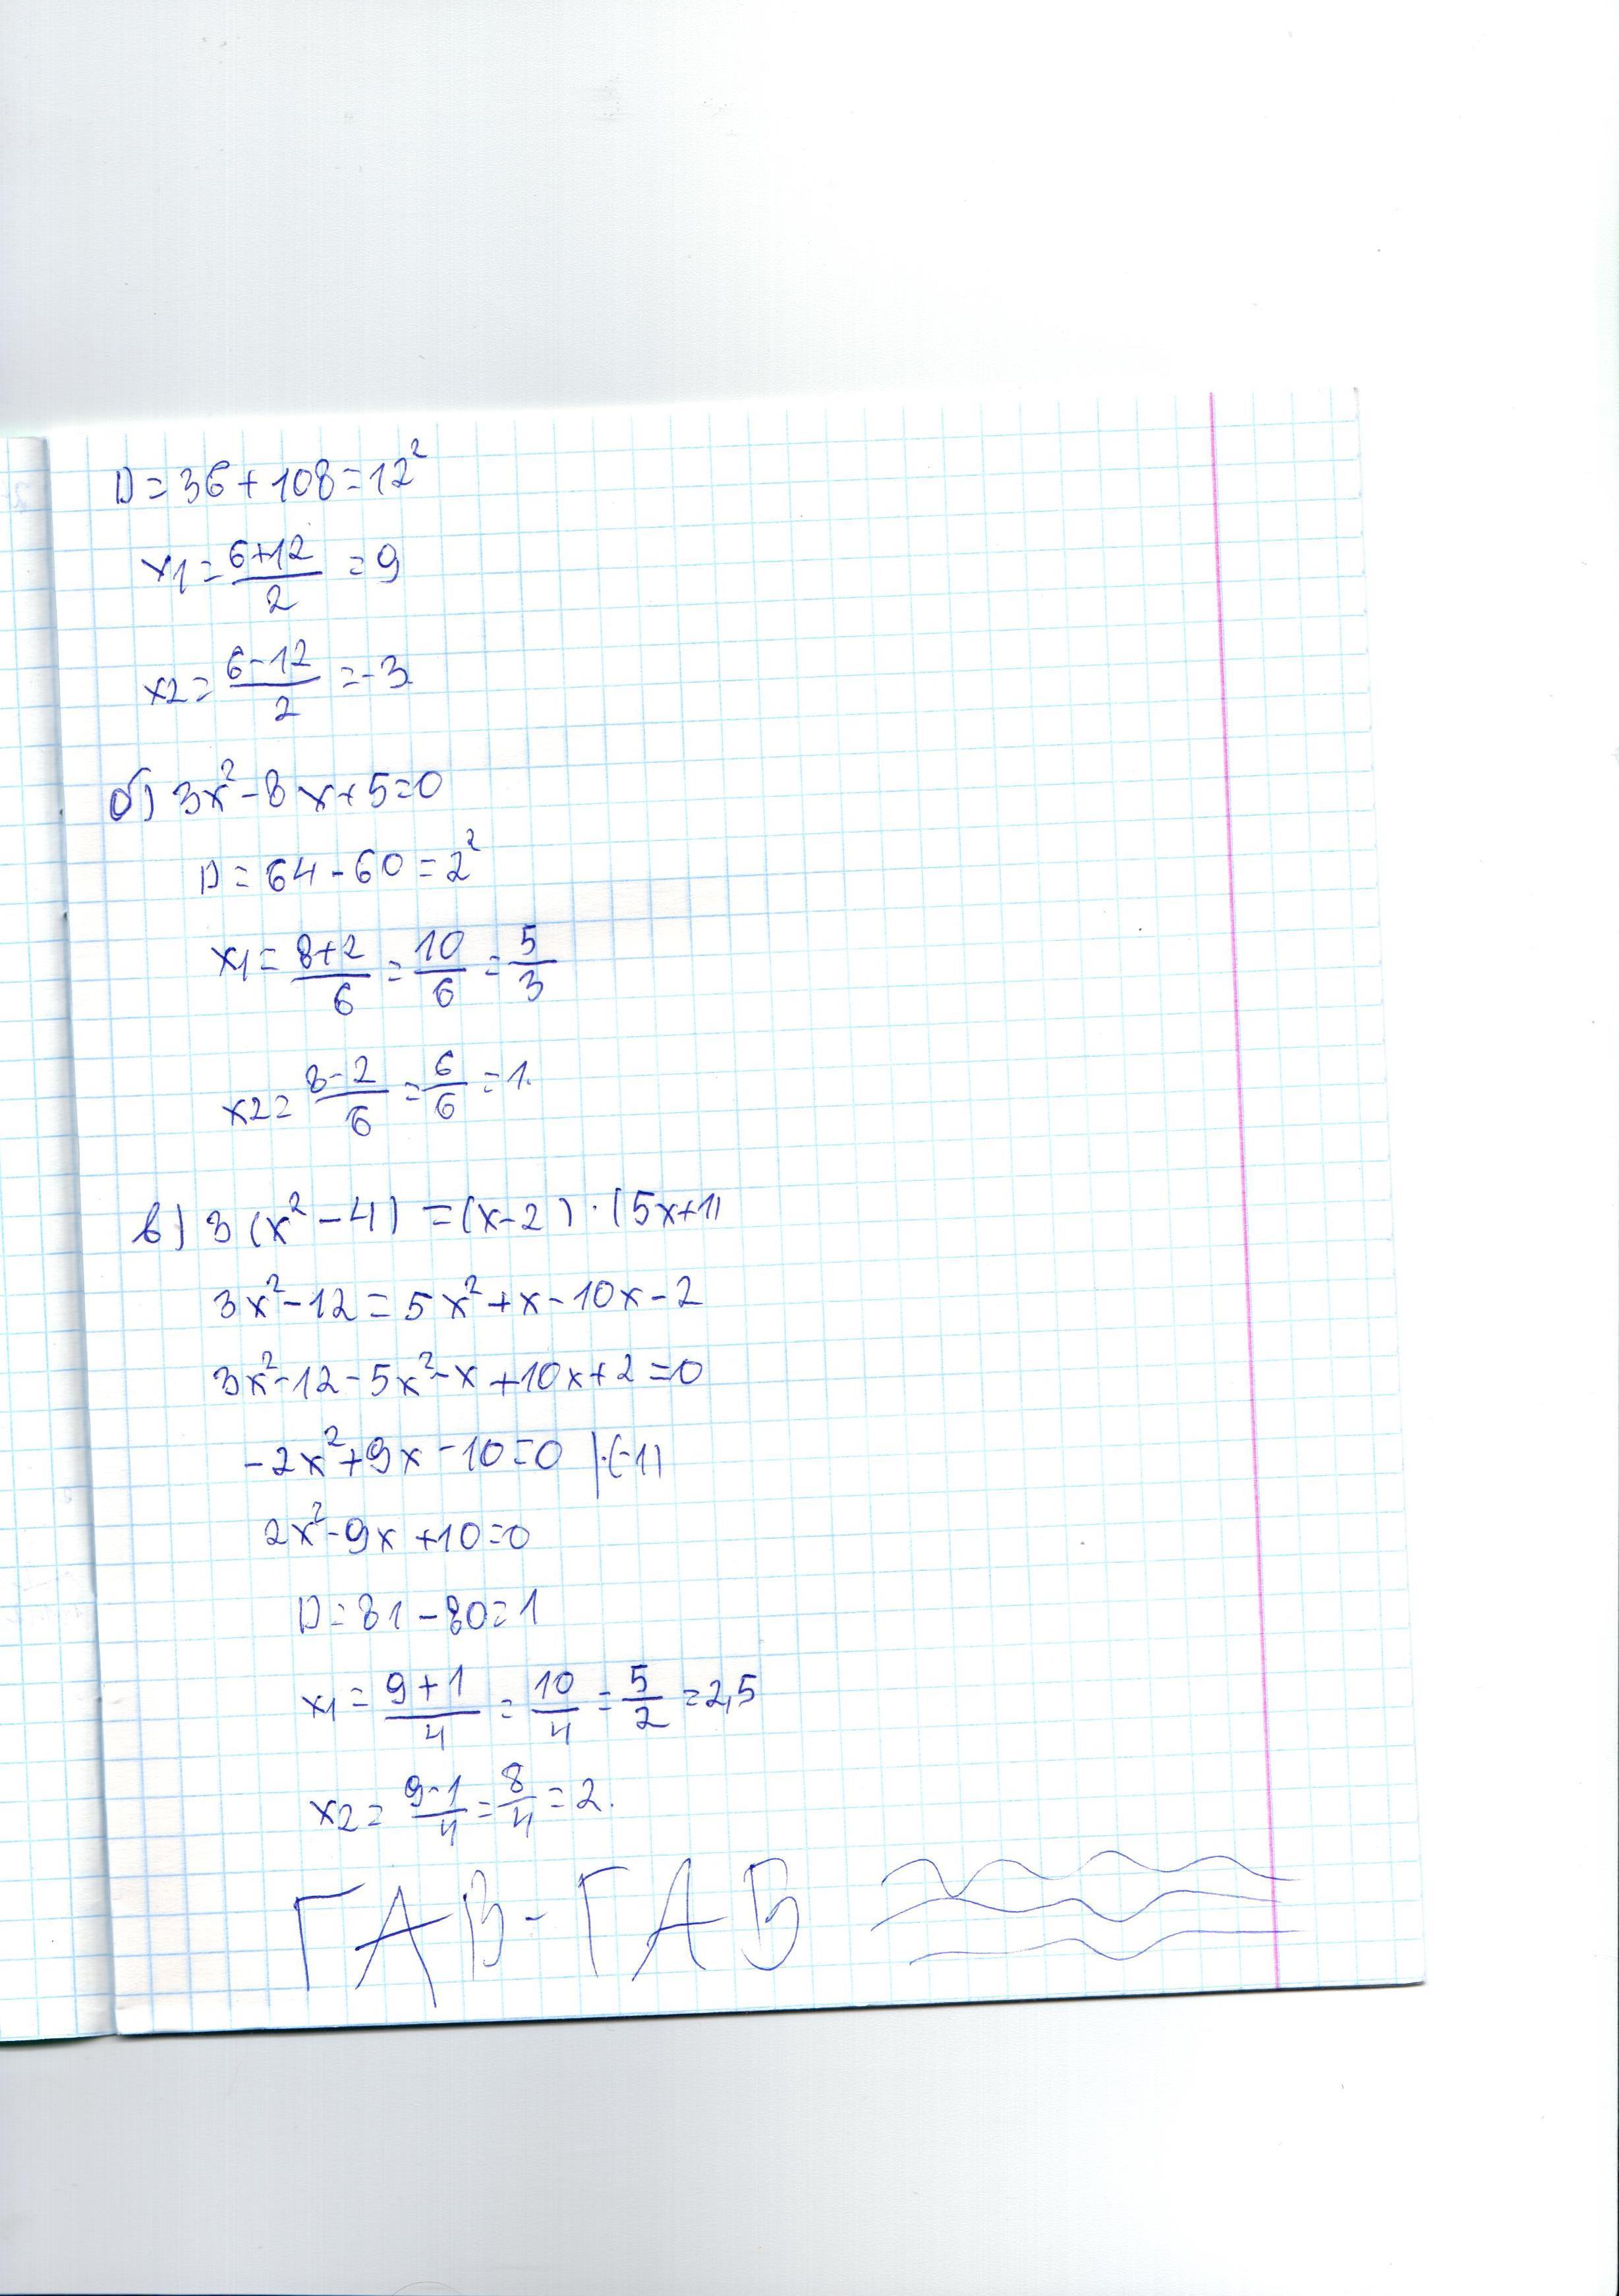 D = 36 + 108 = 12²
x1 = (6+12)/2 = 9
x2 = (6-12)/2 = -3
б) 3x² - 8x + 5 = 0
D = 64 - 60 = 2²
x1 = (8+2)/6 = 10/6 = 5/3
x2 = (8-2)/6 = 6/6 = 1.
в) 3(x² - 4) = (x-2)·(5x+1)
3x² - 12 = 5x² + x - 10x - 2
3x² - 12 - 5x² - x + 10x + 2 = 0
-2x² + 9x - 10 = 0 |·(-1)
2x² - 9x + 10 = 0
D = 81 - 80 = 1
x1 = (9+1)/4 = 10/4 = 5/2 = 2,5
x2 = (9-1)/4 = 8/4 = 2.
ГАВ-ГАВ